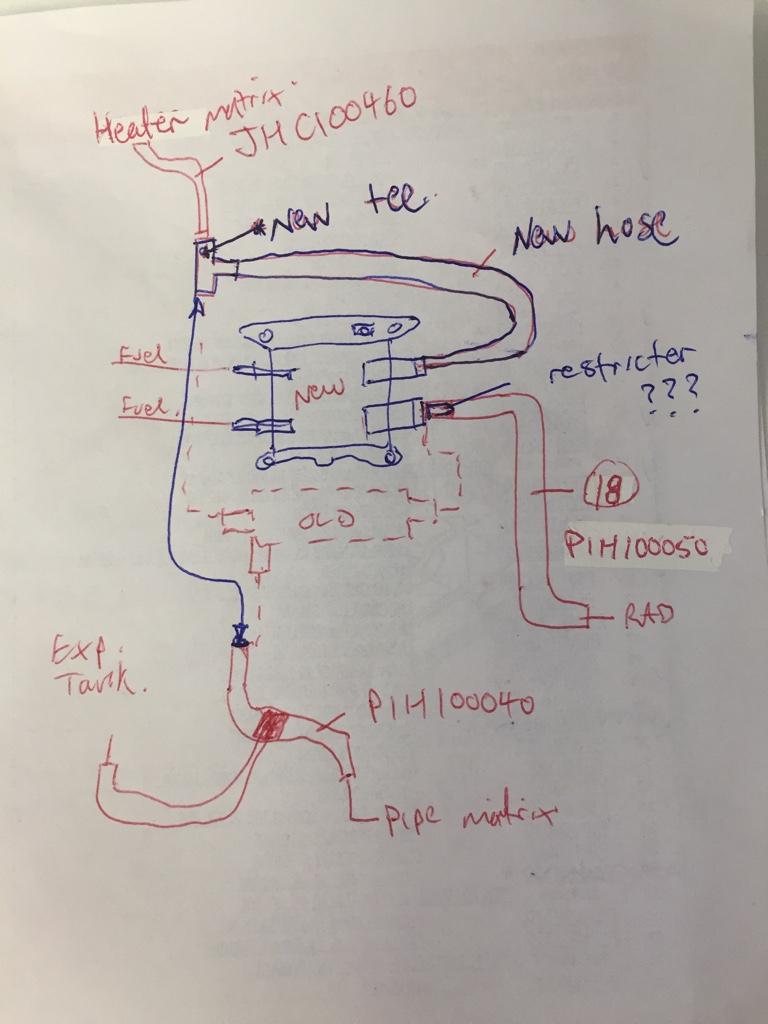 Heater matrix
JHC100460
*New tee.
New hose
Fuel
Fuel.
NEW
restricter
???
18
OLD
PIH100050
RAD
Exp.
Tank.
PIH100040
Pipe matrix